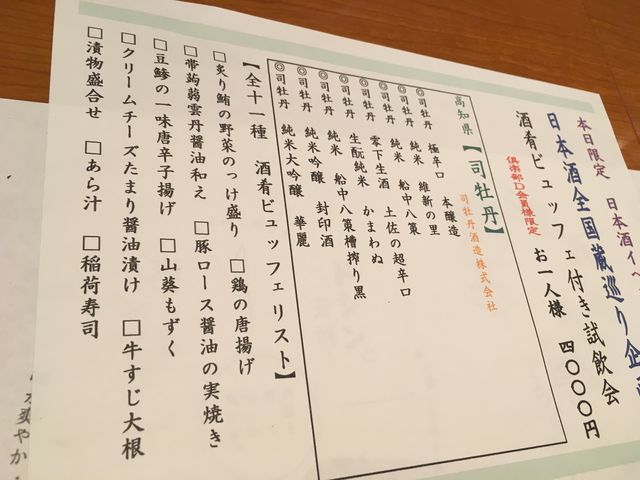 本日限定 日本酒イ
日本酒全国蔵巡り企
酒肴ビュッフェ付き試飲会
倶楽部D会員様限定
お一人様 四〇〇〇円
高知県 【司牡丹】 司牡丹酒造株式会社
◎司牡丹 極辛口 本醸造
◎司牡丹 純米 維新の里
◎司牡丹 純米 船中八策
◎司牡丹 零下生酒 土佐の超辛口
◎司牡丹 生酛純米 かまわぬ
◎司牡丹 純米 船中八策槽搾り黒
◎司牡丹 純米吟醸 封印酒
◎司牡丹 純米大吟醸 華麗
【全十一種 酒肴ビュッフェリスト】
□炙り鮪の野菜のっけ盛り □鶏の唐揚げ
□帯蒟蒻雲丹醤油和え □豚ロース醤油の実焼き
□豆鯵の一味唐辛子揚げ □山葵もずく
□クリームチーズたまり醤油漬け □牛すじ大根
□漬物盛合せ □あら汁 □稲荷寿司
爽やか